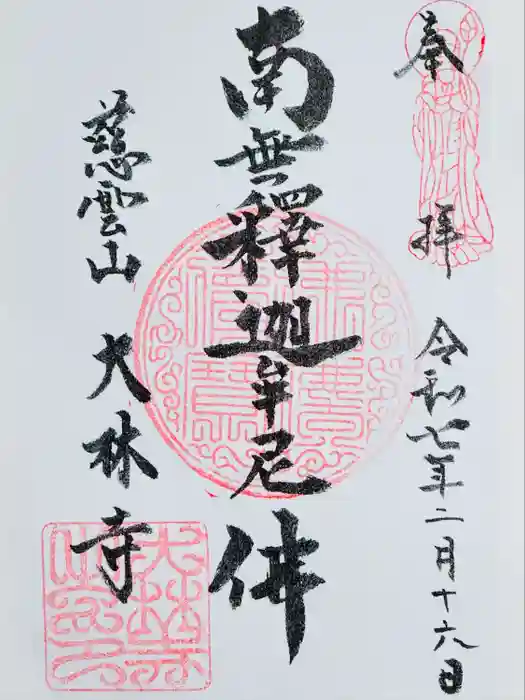 奉拝
令和七年二月十六日
南無釋迦牟尼佛
慈雲山
大林寺